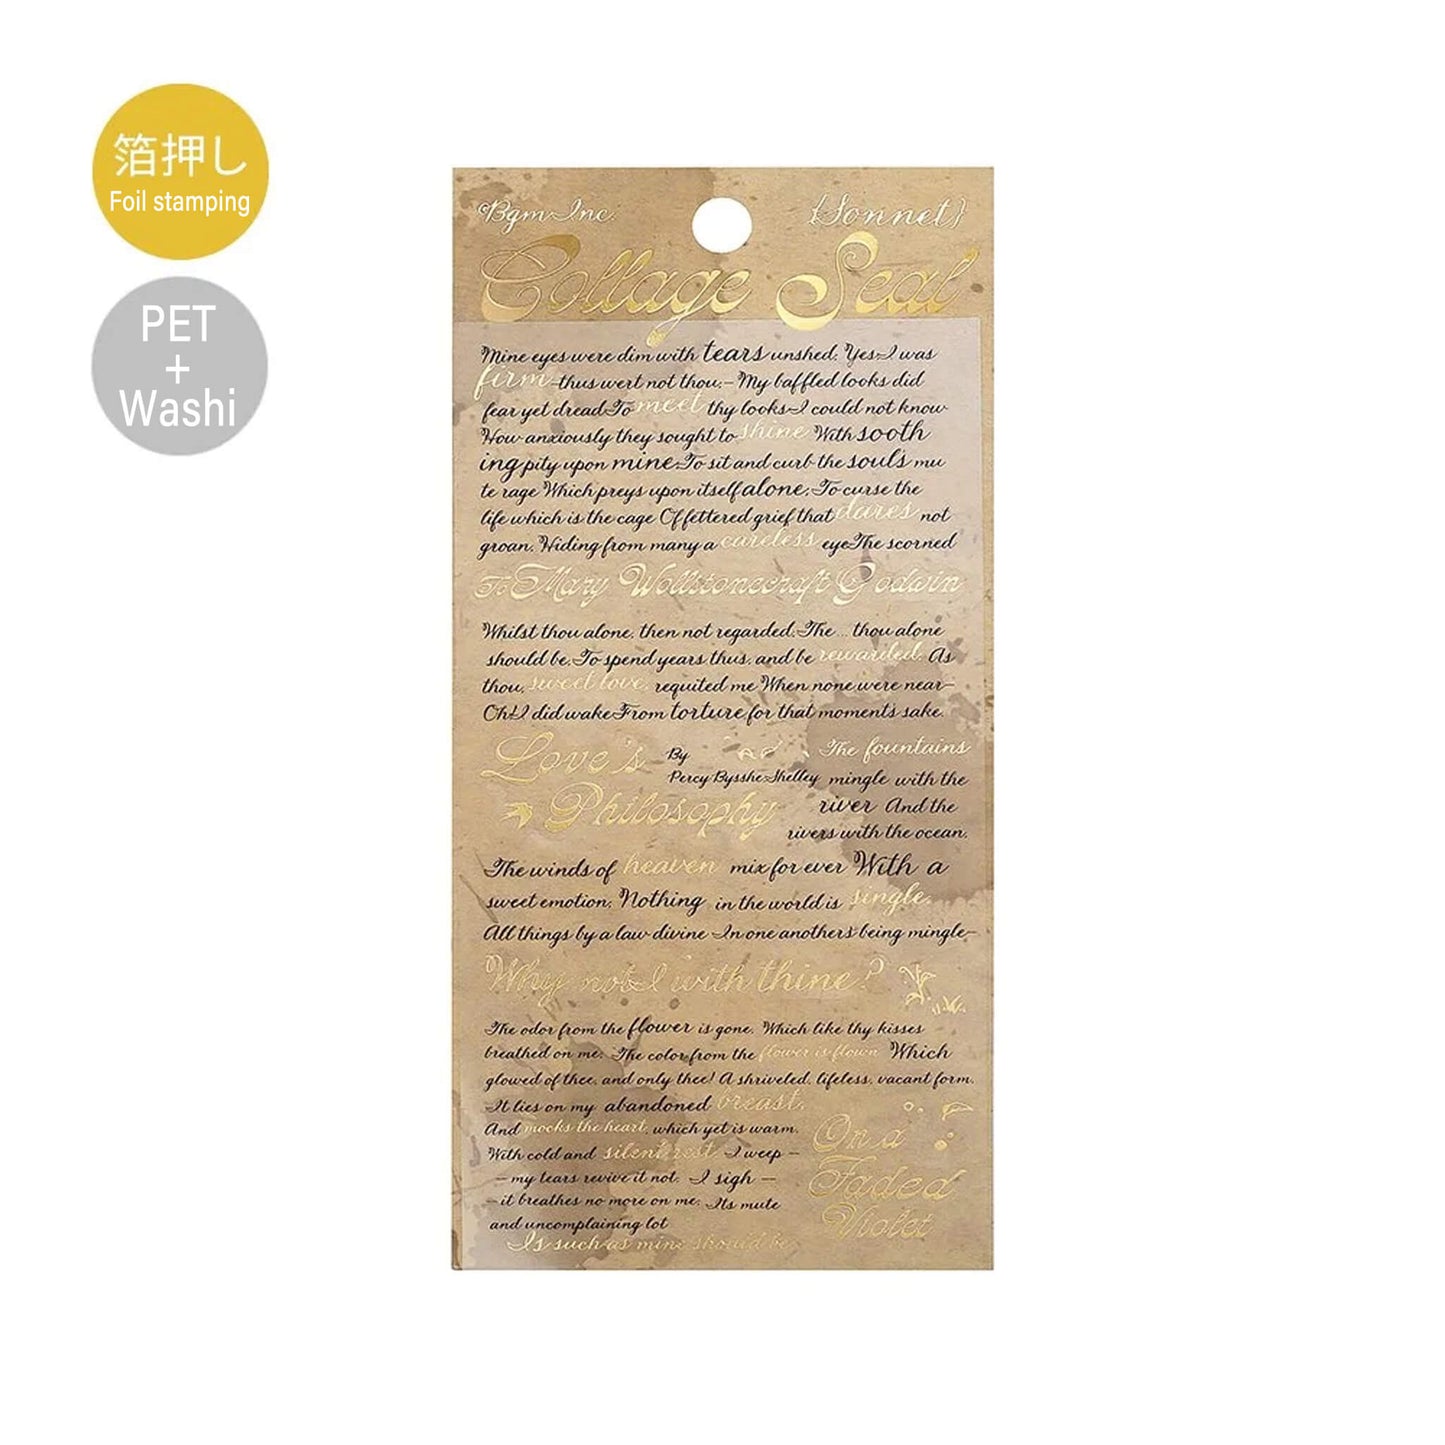 箔押し
Foil stamping
PET
+
Washi
©Bgm Inc.
{Sonnet}
Collage Seal
Mine eyes were dim with tears unshed. Yes I was
firm thus wert not thou:— My baffled looks did
fear yet dread To meet thy looks I could not know
How anxiously they sought to shine With sooth
ing pity upon mine. To sit and curb the souls mu
te rage Which preys upon itself alone; To curse the
life which is the cage Of fettered grief that dares not
groan, Hiding from many a careless eye The scorned
To Mary Wollstonecraft Godwin
Whilst thou alone, then not regarded, The ... thou alone
should be, To spend years thus, and be rewarded, As
thou, sweet love, requited me When none were near—
Oh! I did wake From torture for that moment's sake.
Love's
Philosophy
By
Percy Bysshe Shelley
The fountains
mingle with the
river And the
rivers with the ocean,
The winds of heaven mix for ever With a
sweet emotion; Nothing in the world is single,
All things by a law divine In one anothers being mingle—
Why not I with thine?
The odor from the flower is gone, Which like thy kisses
breathed on me; The color from the flower is flown Which
glowed of thee, and only thee! A shriveled, lifeless, vacant form,
It lies on my abandoned breast,
And mocks the heart, which yet is warm,
With cold and silent rest. I weep —
—my tears revive it not. I sigh —
—it breathes no more on me; Its mute
and uncomplaining lot
Is such as mine should be
On a
Faded
Violet